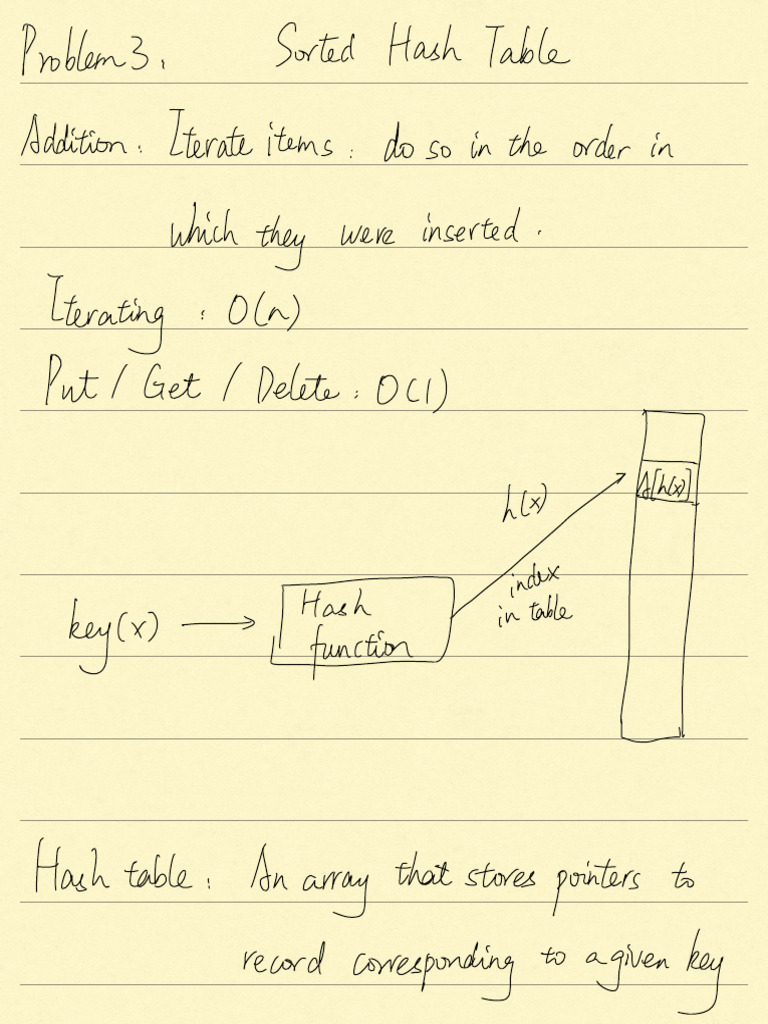 Problem 3: Sorted Hash Table
Addition: Iterate items: do so in the order in
which they were inserted.
Iterating: O(n)
Put / Get / Delete: O(1)
A[h(x)]
h(x)
index
in table
key(x)
Hash
function
Hash table: An array that stores pointers to
record corresponding to a given key